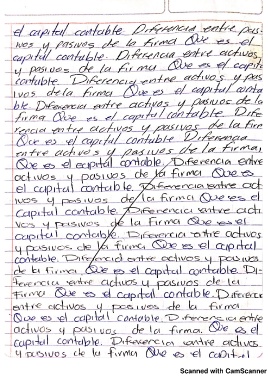 el capital contable. Diferencia entre pasi-
vos y pasivos de la firma Que es el
capital contable. Diferencia entre activos
y pasivos de la firma. Que es el capital
contable. Diferencia entre activos y pas
ivos de la firma Que es el capital conta
ble Diferencia entre activos y pasivos de la
firma Que es el capital contable. Dife
rencia entre activos y pasivos de la firm
Que es el capital contable. Diferencia
entre activos y pasivos de la firma.
Que es el capital contable. Diferencia entre
activos y pasivos de la firma. Que es
el capital contable. Diferencia entre act
ivos y pasivos de la firma Que es el
Capital contable. Diferencia entre acti
vos y pasivos de la firma Que es el
capital contable. Diferencia entre activos
y pasivos de la firma. Que es el capital
contable. Diferencia entre activos y pasivos
de la firma. Que es el capital contable. Di-
ferencia entre activos y pasivos de la
firma Que es el capital contable. Diferencia
entre activos y pasivos de la firma
Que es el capital contable. Diferencia entre
activos y pasivos de la firma. Que es el
capital contable. Diferencia entre activos
y pasivos de la firma Que es el capital
Scanned with CamScanner